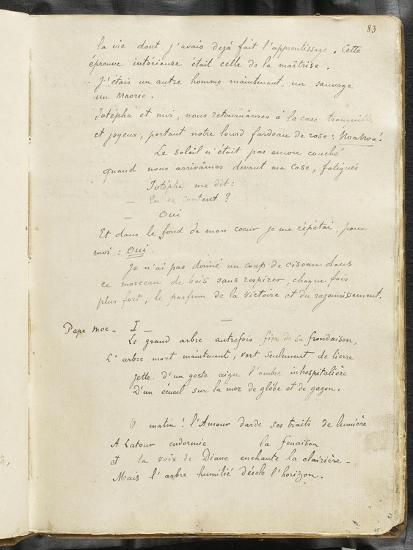 83
la vie dont j'avais dejá fait l'apprentissage. Cette
épreuve intérieure était celle de la maîtrise.
J'étais un autre homme maintenant, un sauvage
un Maorie.
Jotépha et moi, nous retournâmes à la case tranquilles
et joyeux, portant notre lourd fardeau de rose: Noanoa!
Le soleil n'était pas encore couché
quand nous arrivâmes devant ma case, fatigués
Jotépha me dit:
— Tu es content?
— Oui
Et dans le fond de mon cœur je me répétai, pour
moi: Oui
Je n'ai pas donné un coup de ciseau dans
ce morceau de bois sans respirer, chaque fois
plus fort, le parfum de la victoire et du rajeunissement.
Pape moe - I —
Le grand arbre autrefois fier de sa frondaison,
L'arbre mort maintenant, vert seulement de lierre
jette d'un geste aigu l'ombre inhospitalière
D'un écueil sur la mer de glèbe et de gazon.
O matin! l'Amour darde ses traits de lumière
A Latour endormie la fenaison
et la voix de Diane enchante la clairière -
Mais l'arbre humilié désole l'horizon.